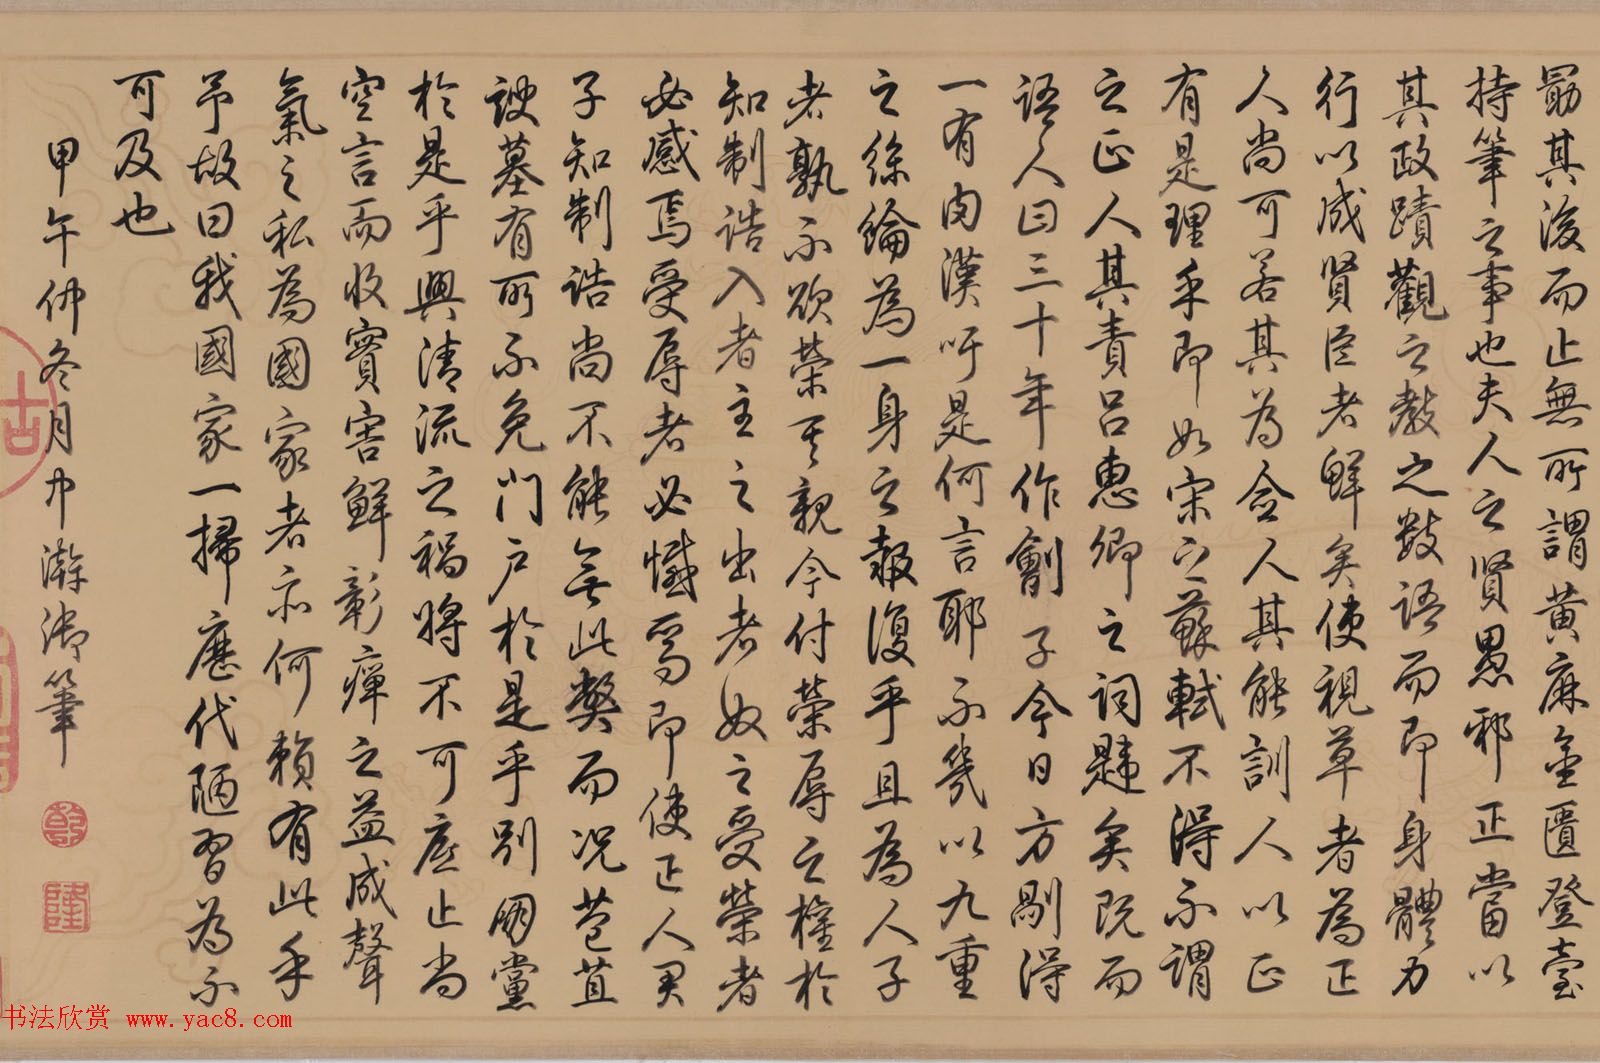 勗其後而止無所謂黃麻金匱登臺
持筆之事也夫人之賢愚邪正當以
其政蹟觀之教之數語而即身體力
行以成賢臣者鮮矣使視草者為正
人尚可若其為僉人其能訓人以正
有是理乎即如宋之蘇軾不得不謂
之正人其責呂惠卿之詞韙矣既而
語人曰三十年作劊子今日方剮得
一有肉漢吁是何言耶不幾以九重
之絲綸為一身之報復乎且為人子
者孰不欲榮其親今付榮辱之權於
知制誥入者主之出者奴之受榮者
必感焉受辱者必憾焉即使正人君
子知制誥尚不能無此獘而況苞苴
諛墓有所不免門戶於是乎別朋黨
於是乎興清流之禍將不可底止尚
空言而收實害鮮彰癉之益成聲
氣之私為國家者亦何賴有此乎
予故曰我國家一掃歷代陋習為不
可及也
甲午仲冬月中澣御筆
乾
隆
书法欣赏 www.yac8.com